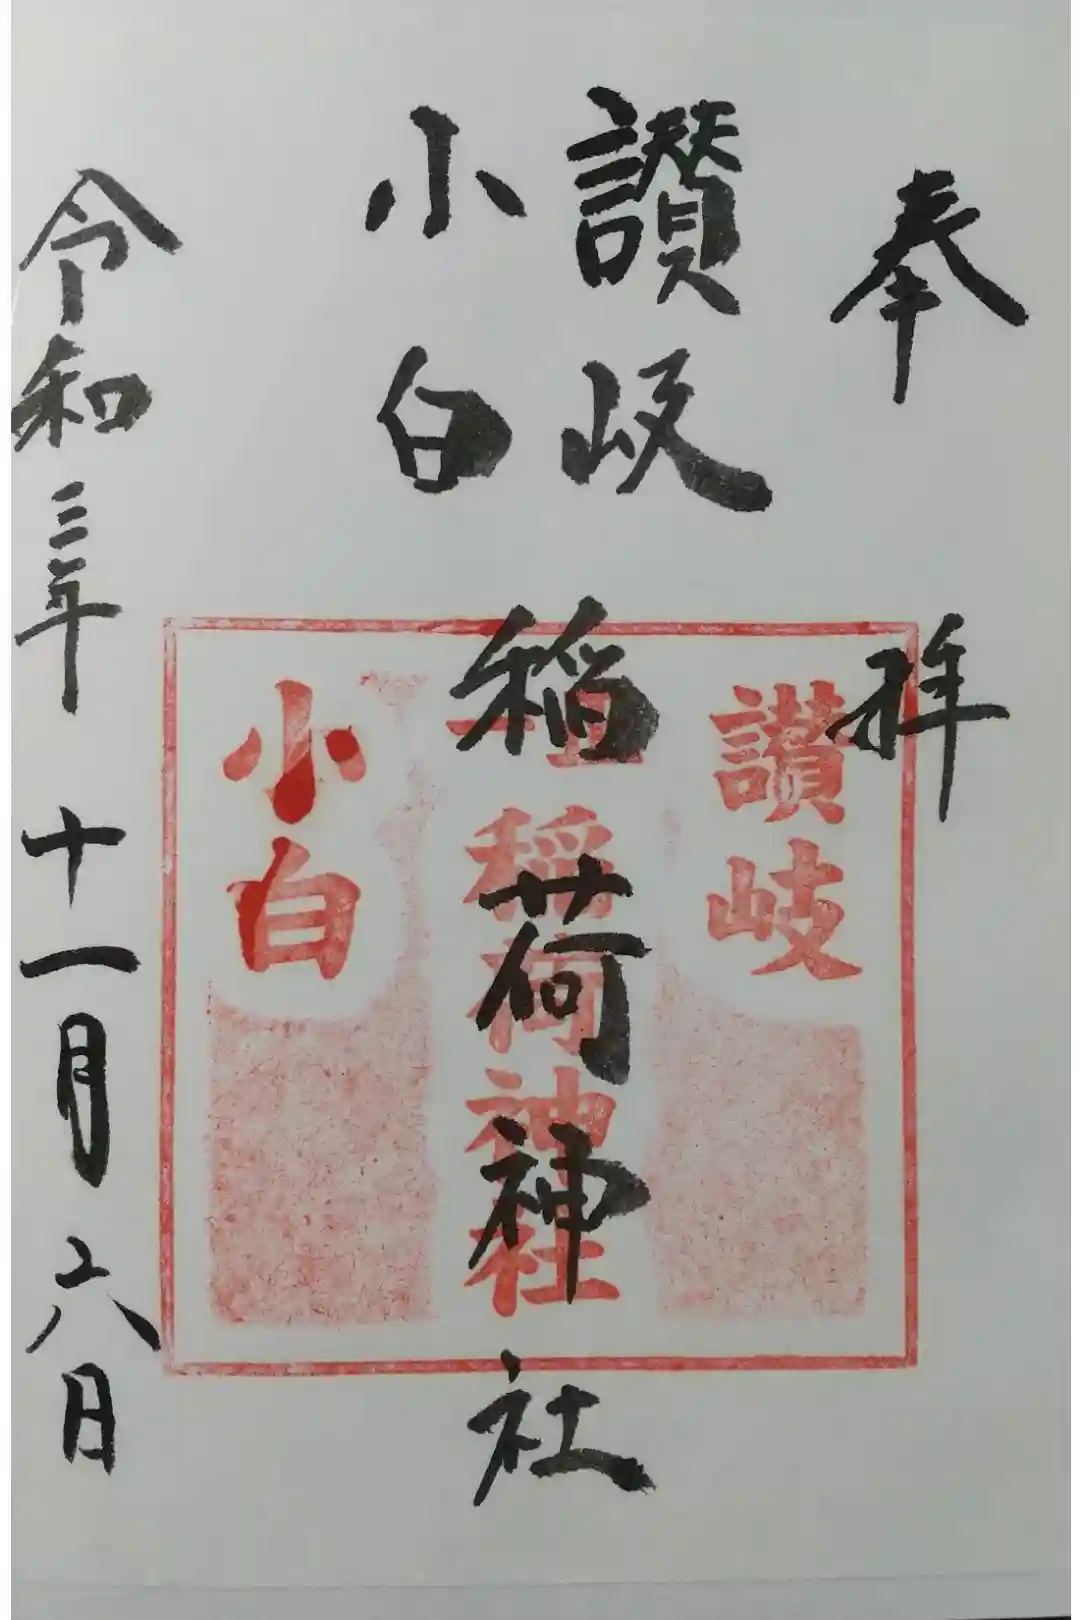 奉拝
讃岐
小白
稲荷神社
令和三年十一月六日
讃岐
稲荷神社
小白